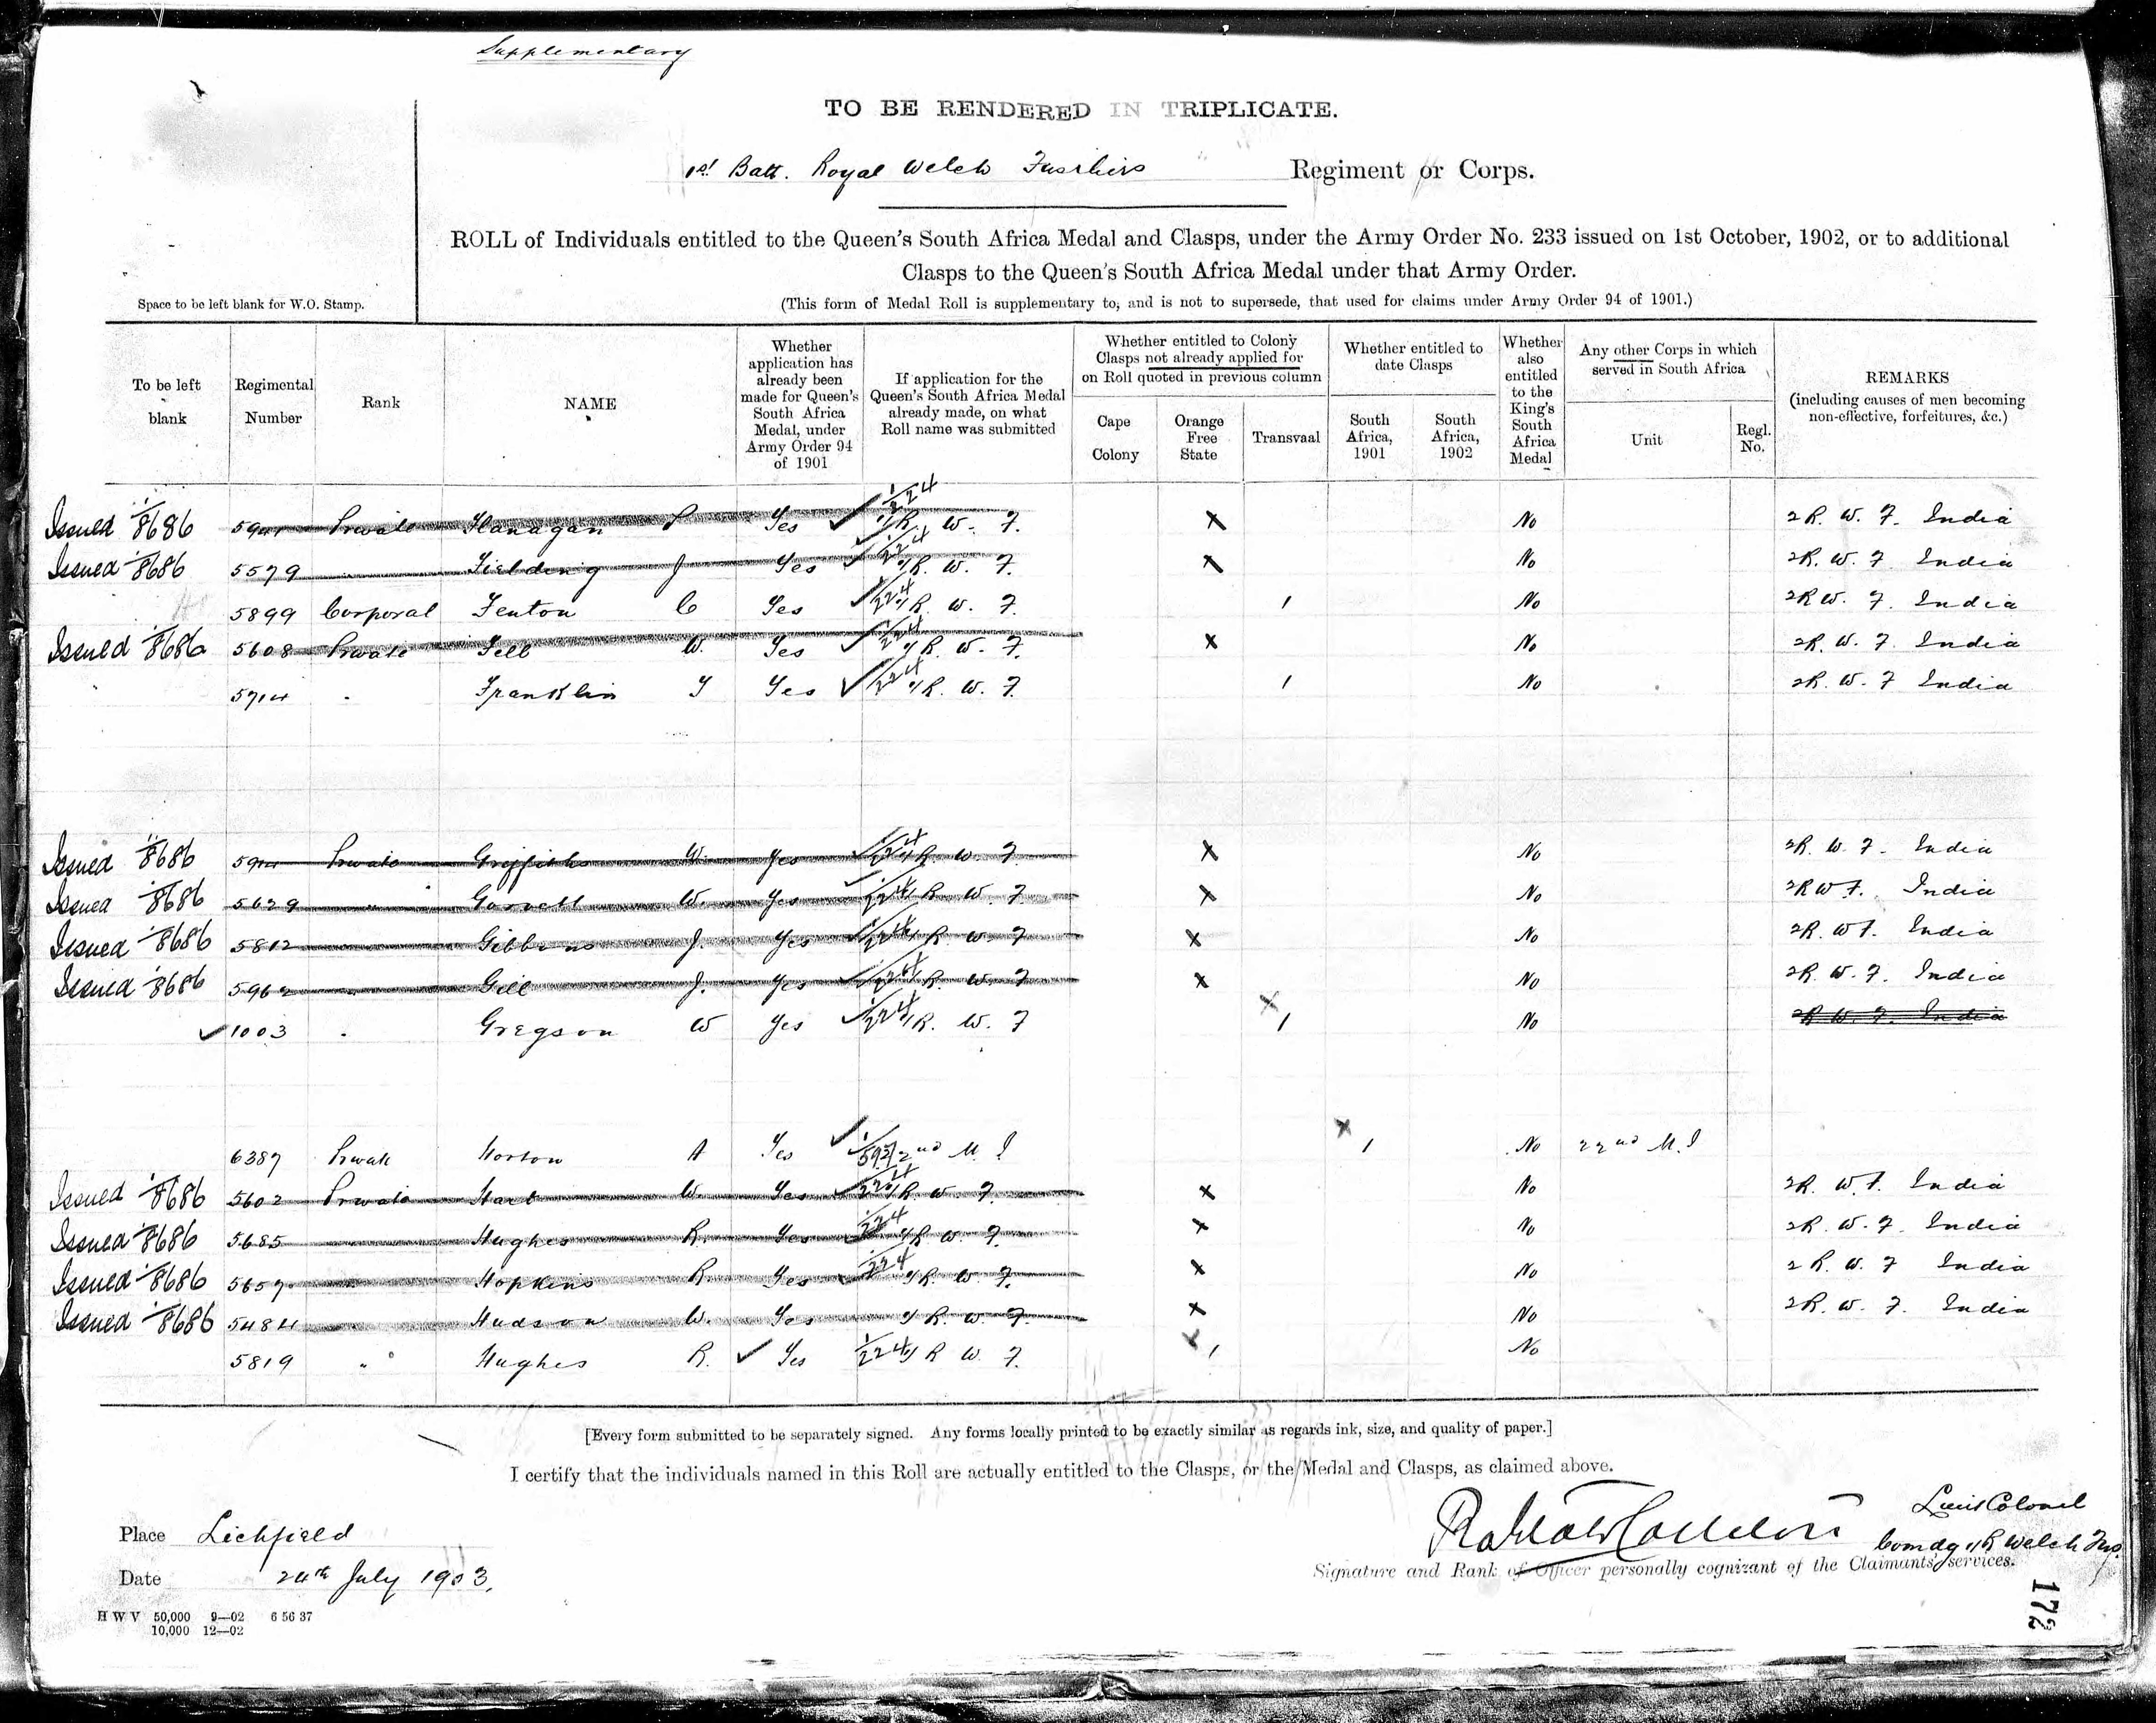 Supplementary
TO BE RENDERED IN TRIPLICATE.
1st Batt. Royal Welch Fusiliers Regiment or Corps.
ROLL of Individuals entitled to the Queen's South Africa Medal and Clasps, under the Army Order No. 233 issued on 1st October, 1902, or to additional
Clasps to the Queen's South Africa Medal under that Army Order.
Space to be left blank for W.O. Stamp.
(This form of Medal Roll is supplementary to, and is not to supersede, that used for claims under Army Order 94 of 1901.)
To be left blank
Regimental Number
Rank
NAME
Whether application has already been made for Queen's South Africa Medal, under Army Order 94 of 1901
If application for the Queen's South Africa Medal already made, on what Roll name was submitted
Whether entitled to Colony Clasps not already applied for on Roll quoted in previous column
Cape Colony
Orange Free State
Transvaal
Whether entitled to date Clasps
South Africa, 1901
South Africa, 1902
Whether also entitled to the King's South Africa Medal
Any other Corps in which served in South Africa
Unit
Regl. No.
REMARKS
(including causes of men becoming non-effective, forfeitures, &c.)
Issued 1/8686 Private Flanagan Yes ✓ 1/224 1/R. W. F. X No 2 R. W. F. India
Issued 1/8686 5579 " Fielding J Yes ✓ 1/224 1/R. W. F. X No 2R. W. F. India
5899 Corporal Fenton C Yes ✓ 1/224 1/R. W. F. 1 No 2R W. F. India
Issued 1/8686 5608 Private Fell W. Yes ✓ 1/224 1/R. W. F. X No 2R. W. F. India
5714 " Franklin Yes ✓ 1/224 1/R. W. F. 1 No 2R. W. F India
Issued 1/8686 Private Griffiths W. Yes ✓ 1/224 1/R. W. F. X No 2R. W. F. India
Issued 1/8686 5629 " W. Yes ✓ 1/224 1/R W. F X No 2R W F. India
Issued 1/8686 5812 " Gibbons J. Yes ✓ 1/224 1/R. W. F X No 2R. W F. India
Issued 1/8686 5962 " Gill J. Yes ✓ 1/224 1/R. W. F X No 2R. W. F. India
✓ 1003 " Gregson W Yes ✓ 1/224 1/R. W. F X 1 No 2R W. F. India
6387 Private Horton A Yes ✓ 1/592 22nd M. I X 1 No 22nd M. I
Issued 1/8686 5602 Private W. Yes ✓ 1/224 1/R. W. F. X No 2R. W. F. India
Issued 1/8686 5685 " Hughes R. Yes 1/224 1/R W. F. X No 2R. W. F. India
Issued 1/8686 5657 " Hopkins R. Yes ✓ 1/224 1/R. W. F. X No 2 R. W. F India
Issued 1/8686 5484 " Hudson W. Yes 1/R. W. F. X No 2R. W. F. India
5819 " Hughes R. ✓ Yes 1/224 1/R W. F. X 1 No
[Every form submitted to be separately signed. Any forms locally printed to be exactly similar as regards ink, size, and quality of paper.]
I certify that the individuals named in this Roll are actually entitled to the Clasps, or the Medal and Clasps, as claimed above.
Lieut Colonel
Place Lichfield
Comdg 1/R Welch Fus.
Signature and Rank of Officer personally cognizant of the Claimants' services.
Date 24th July 1903.
H W V 50,000 9—02 6 56 37
10,000 12—02
172